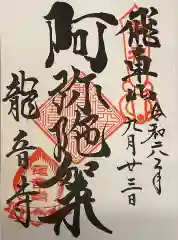 飛車山
令和
九月廿三日
阿弥陀如来
龍音寺